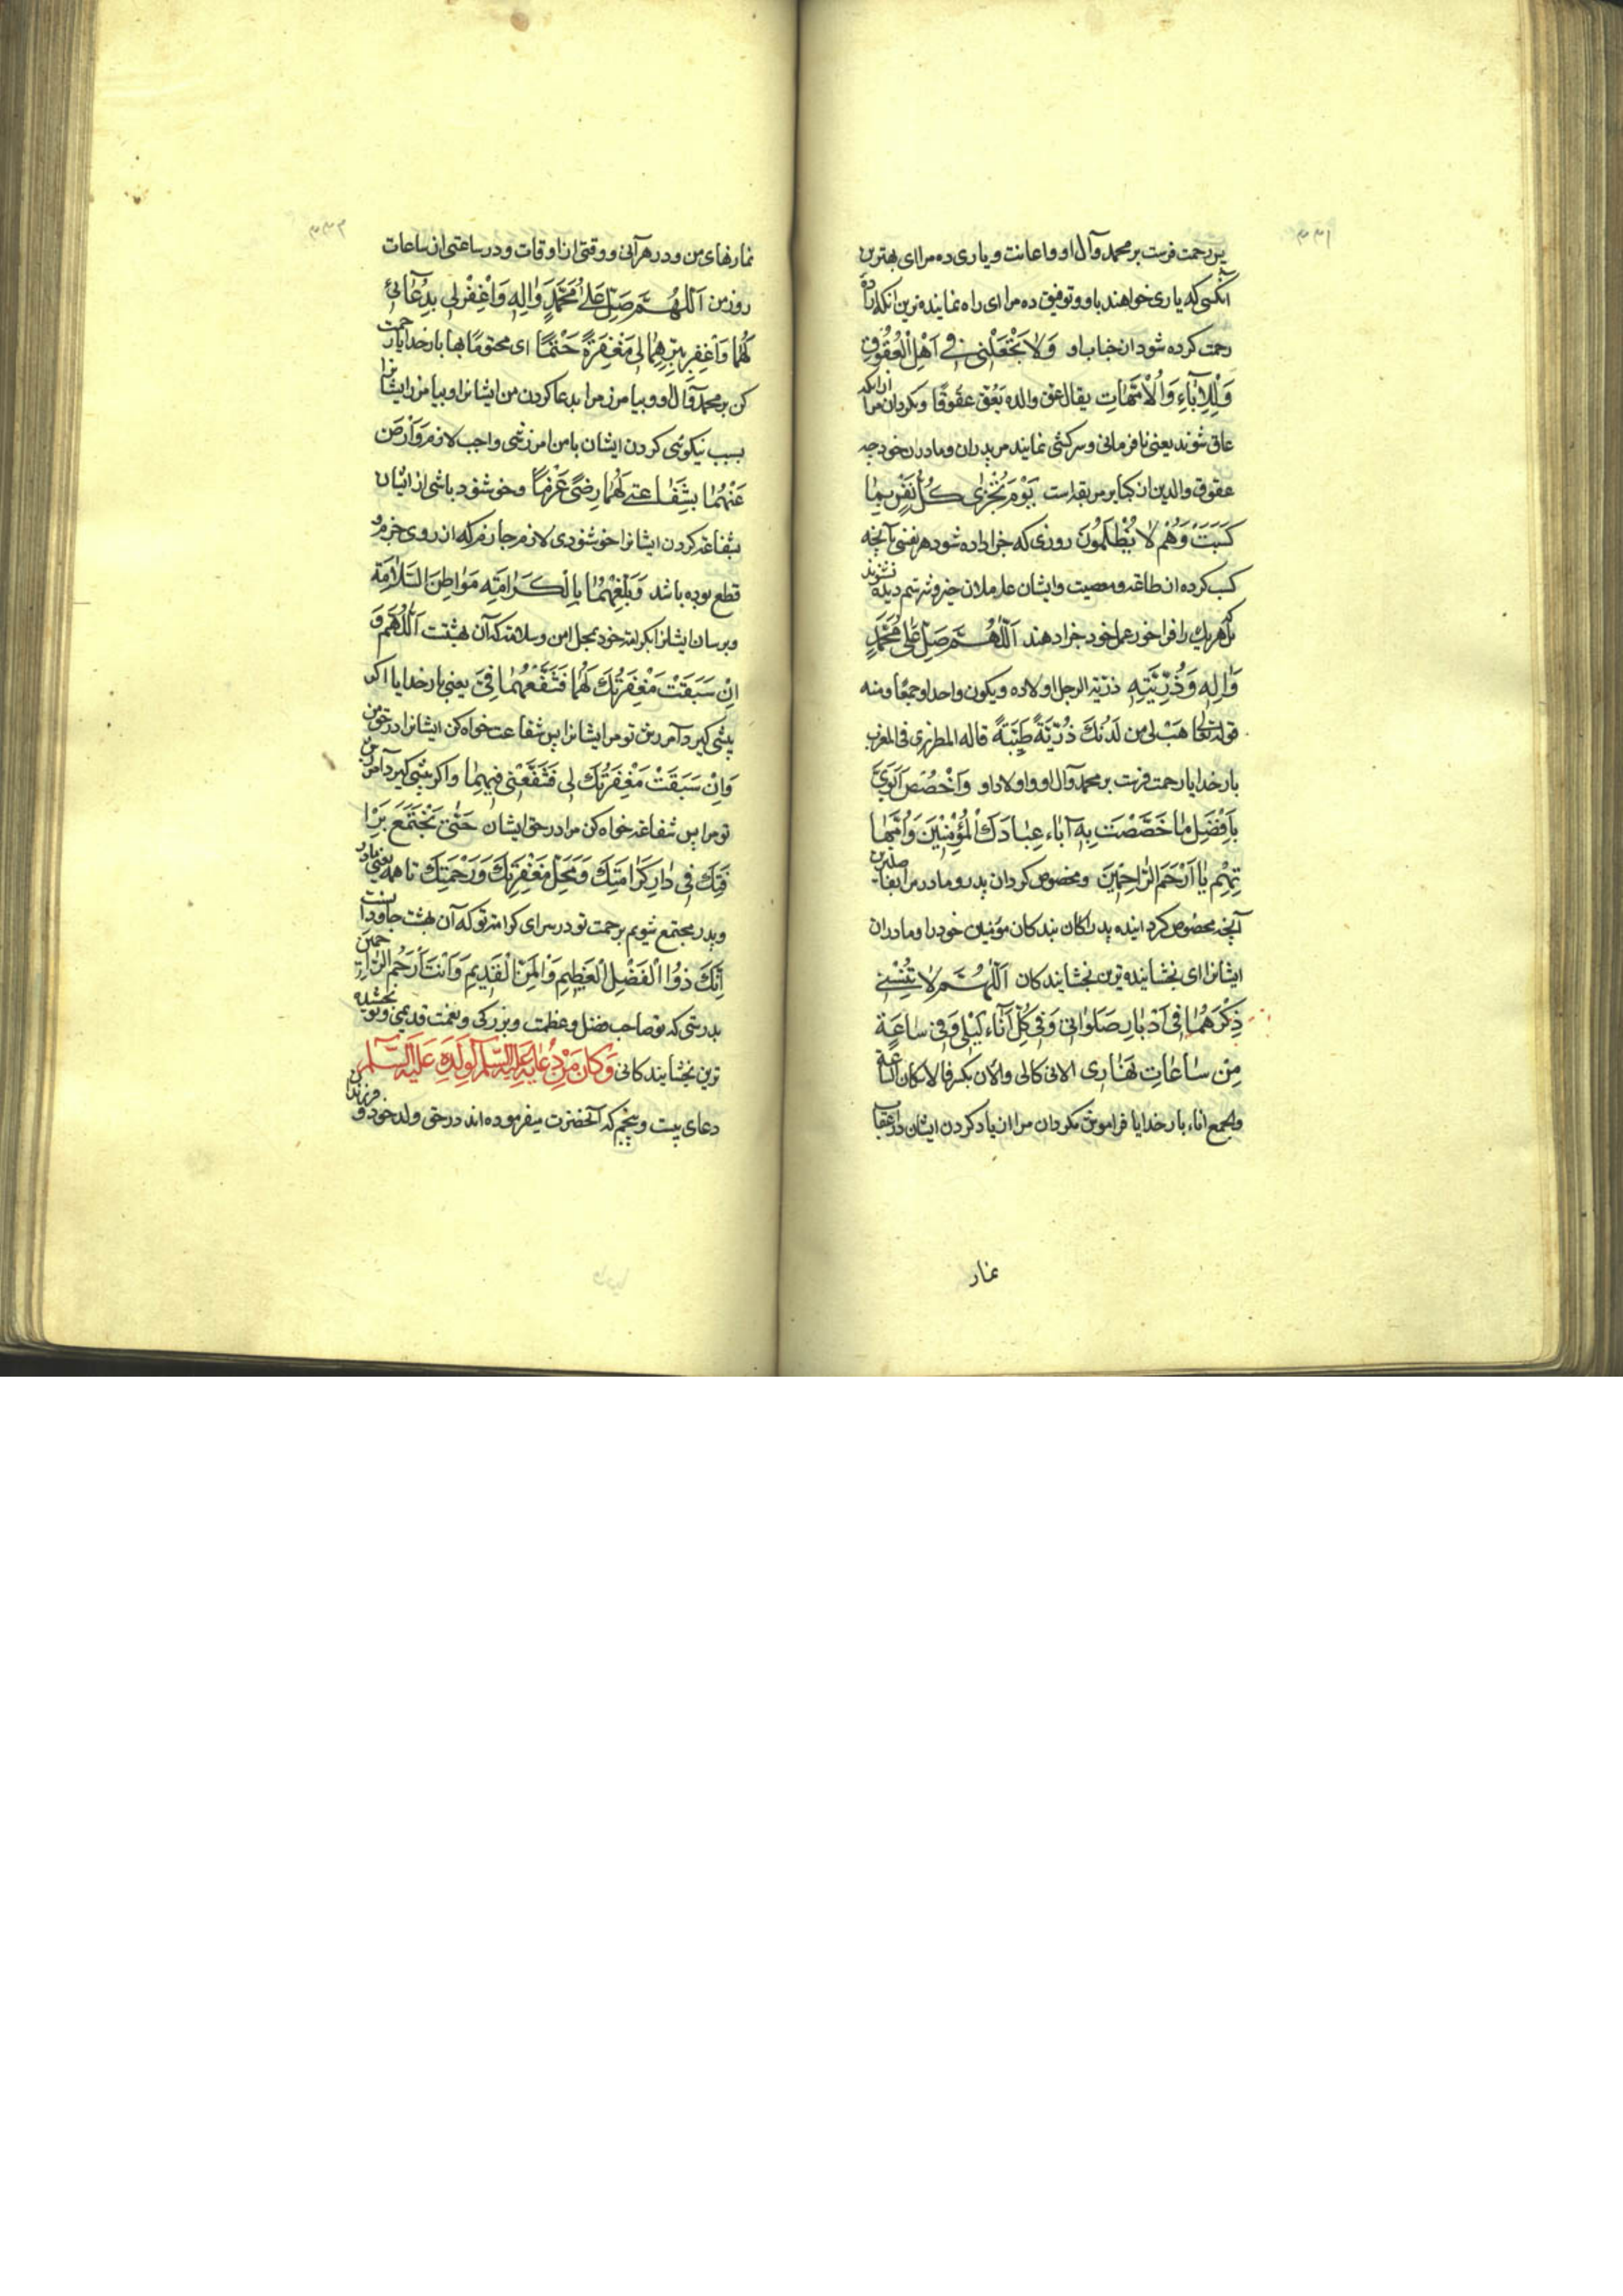 ۳۳۱
پس رحمت فرست بر محمد وآل او واعانت ویاری ده مرا ای بهترین
آنکسی که یاری خواهند باو وتوفیق ده مرا ای راه نماینده ترین آنکه اراده
رحمت کرده شود ازجناب او وَلا تَجْعَلْنی فی اَهْلِ الْعُقُوقِ
وَلِلْاٰبٰاءِ وَالْاُمَّهٰاتِ یقال عق والده یَعُق عقُوقًا ومکردان مرا ازانکه
عاق شوند یعنی نافرمانی وسرکشی نمایند مر پدران ومادران خود چه
عقوق والدین از کبایر موبقه است یَوْمَ تُجْزٰی کُلُّ نَفْسٍ بِمٰا
کَسَبَتْ وَهُمْ لٰا یُظْلَمُونَ روزی که جزا داده شود هر نفسی بآنچه
کسب کرده از طاعة ومعصیت وایشان ستم دیده نشوند
بلکه هریک را فراخور عمل خود جزا دهند اَللّٰهُمَّ صَلِّ عَلٰی مُحَمَّدٍ
وَاٰلِهِ وَذُرِّیَّتِهِ ذرّیة الرجل اولاده ویکون واحدا وجمعًا ومنه
قوله تعالی هَبْ لی مِن لَدُنْكَ ذُرّیَّةً طَیِّبَةً قاله المطرزی فی المغرب
بارخدایا رحمت فرست بر محمد وآل او واولاد او وَاخْصُصْ اَبَوَیَّ
بِاَفْضَلِ مٰا خَصَّصْتَ بِهِ اٰبٰاءَ عِبٰادِكَ الْمُؤْمِنینَ وَاُمَّهٰا
تِهِمْ یٰا اَرْحَمَ الرّٰاحِمینَ ومخصوص کردان پدر ومادر مرا بفاضلترین
آنچه مخصوص کردانیده پدران بندکان مؤمنین خود را ومادران
ایشانرا ای بخشاینده ترین بخشایندکان اَللّٰهُمَّ لٰا تُنْسِنی
ذِکْرَهُمٰا فی اَدْبٰارِ صَلَوٰاتی وَفی کُلِّ اٰنٰاءِ لَیْلی وَفی سٰاعَةٍ
مِنْ سٰاعٰاتِ نَهٰاری الانی کالی والان بکسرفا الاسکان الساعة
والجمع اناء بارخدایا فراموش مکردان مرا از یاد کردن ایشان در اعقاب
نماز
۳۳۲
نمازهای من ودر هر آنی ووقتی از اوقات ودر ساعتی از ساعات
روز من اَللّٰهُمَّ صَلِّ عَلٰی مُحَمَّدٍ وَاٰلِهِ وَاغْفِرْ لی بِدُعٰائی
لَهُمٰا وَاغْفِرْ بِبِرِّهِمٰا لی مَغْفِرَةً حَتْمًا ای محتومًا بها بارخدایا رحمت
کن بر محمد وآل او وبیامرز مرا بدعا کردن من ایشانرا وبیامرز ایشانرا
بسبب نیکوئی کردن ایشان بامن امرزشی واجب لازم وَارْضَ
عَنْهُمٰا بِشَفٰاعَتی لَهُمٰا رِضًی عَزْمًا وخوشنود باشی از ایشان
بشفاعة کردن ایشانرا خوشنودی لازم جازم که از روی جزم و
قطع بوده باشد وَبَلِّغْهُمٰا بِالْکَرٰامَةِ مَوٰاطِنَ السَّلٰامَةِ
وبرسان ایشانرا بکرامة خود بمحل امن وسلامة که آن بهشتست اَللّٰهُمَّ وَ
اِنْ سَبَقَتْ مَغْفِرَتُكَ لَهُمٰا فَشَفِّعْهُمٰا فِیَّ یعنی بارخدایا اکر
پیشی کیرد آمرزش تو مر ایشانرا پس شفاعت خواه کن ایشانرا در حق من
وَاِنْ سَبَقَتْ مَغْفِرَتُكَ لی فَشَفِّعْنی فیهِمٰا واکر پیشی کیرد آمرزش
تو مرا پس شفاعة خواه کن مرا در حق ایشان حَتّٰی نَجْتَمِعَ بِرَأْ
فَتِكَ فی دٰارِ کَرٰامَتِكَ وَمَحَلِّ مَغْفِرَتِكَ وَرَحْمَتِكَ تا همه یعنی مادر
وپدر مجتمع شویم برحمت تو در سرای کرامة تو که آن بهشت جاودانست
اِنَّكَ ذُوا الْفَضْلِ الْعَظیمِ وَالْمَنِّ الْقَدیمِ وَاَنْتَ اَرْحَمُ الرّٰاحِمینَ
بدرستی که تو صاحب فضل وعظمت وبزرکی ونعمت قدیمی وتو بخشنده
ترین بخشایندکانی وَکٰانَ مِنْ دُعٰائِهِ عَلَیْهِ السَّلٰام لِوَلَدِهِ عَلَیْهِ السَّلٰام
دعای بیست وپنجم که آنحضرت میفرموده اند در حق ولد خود و فرزندان